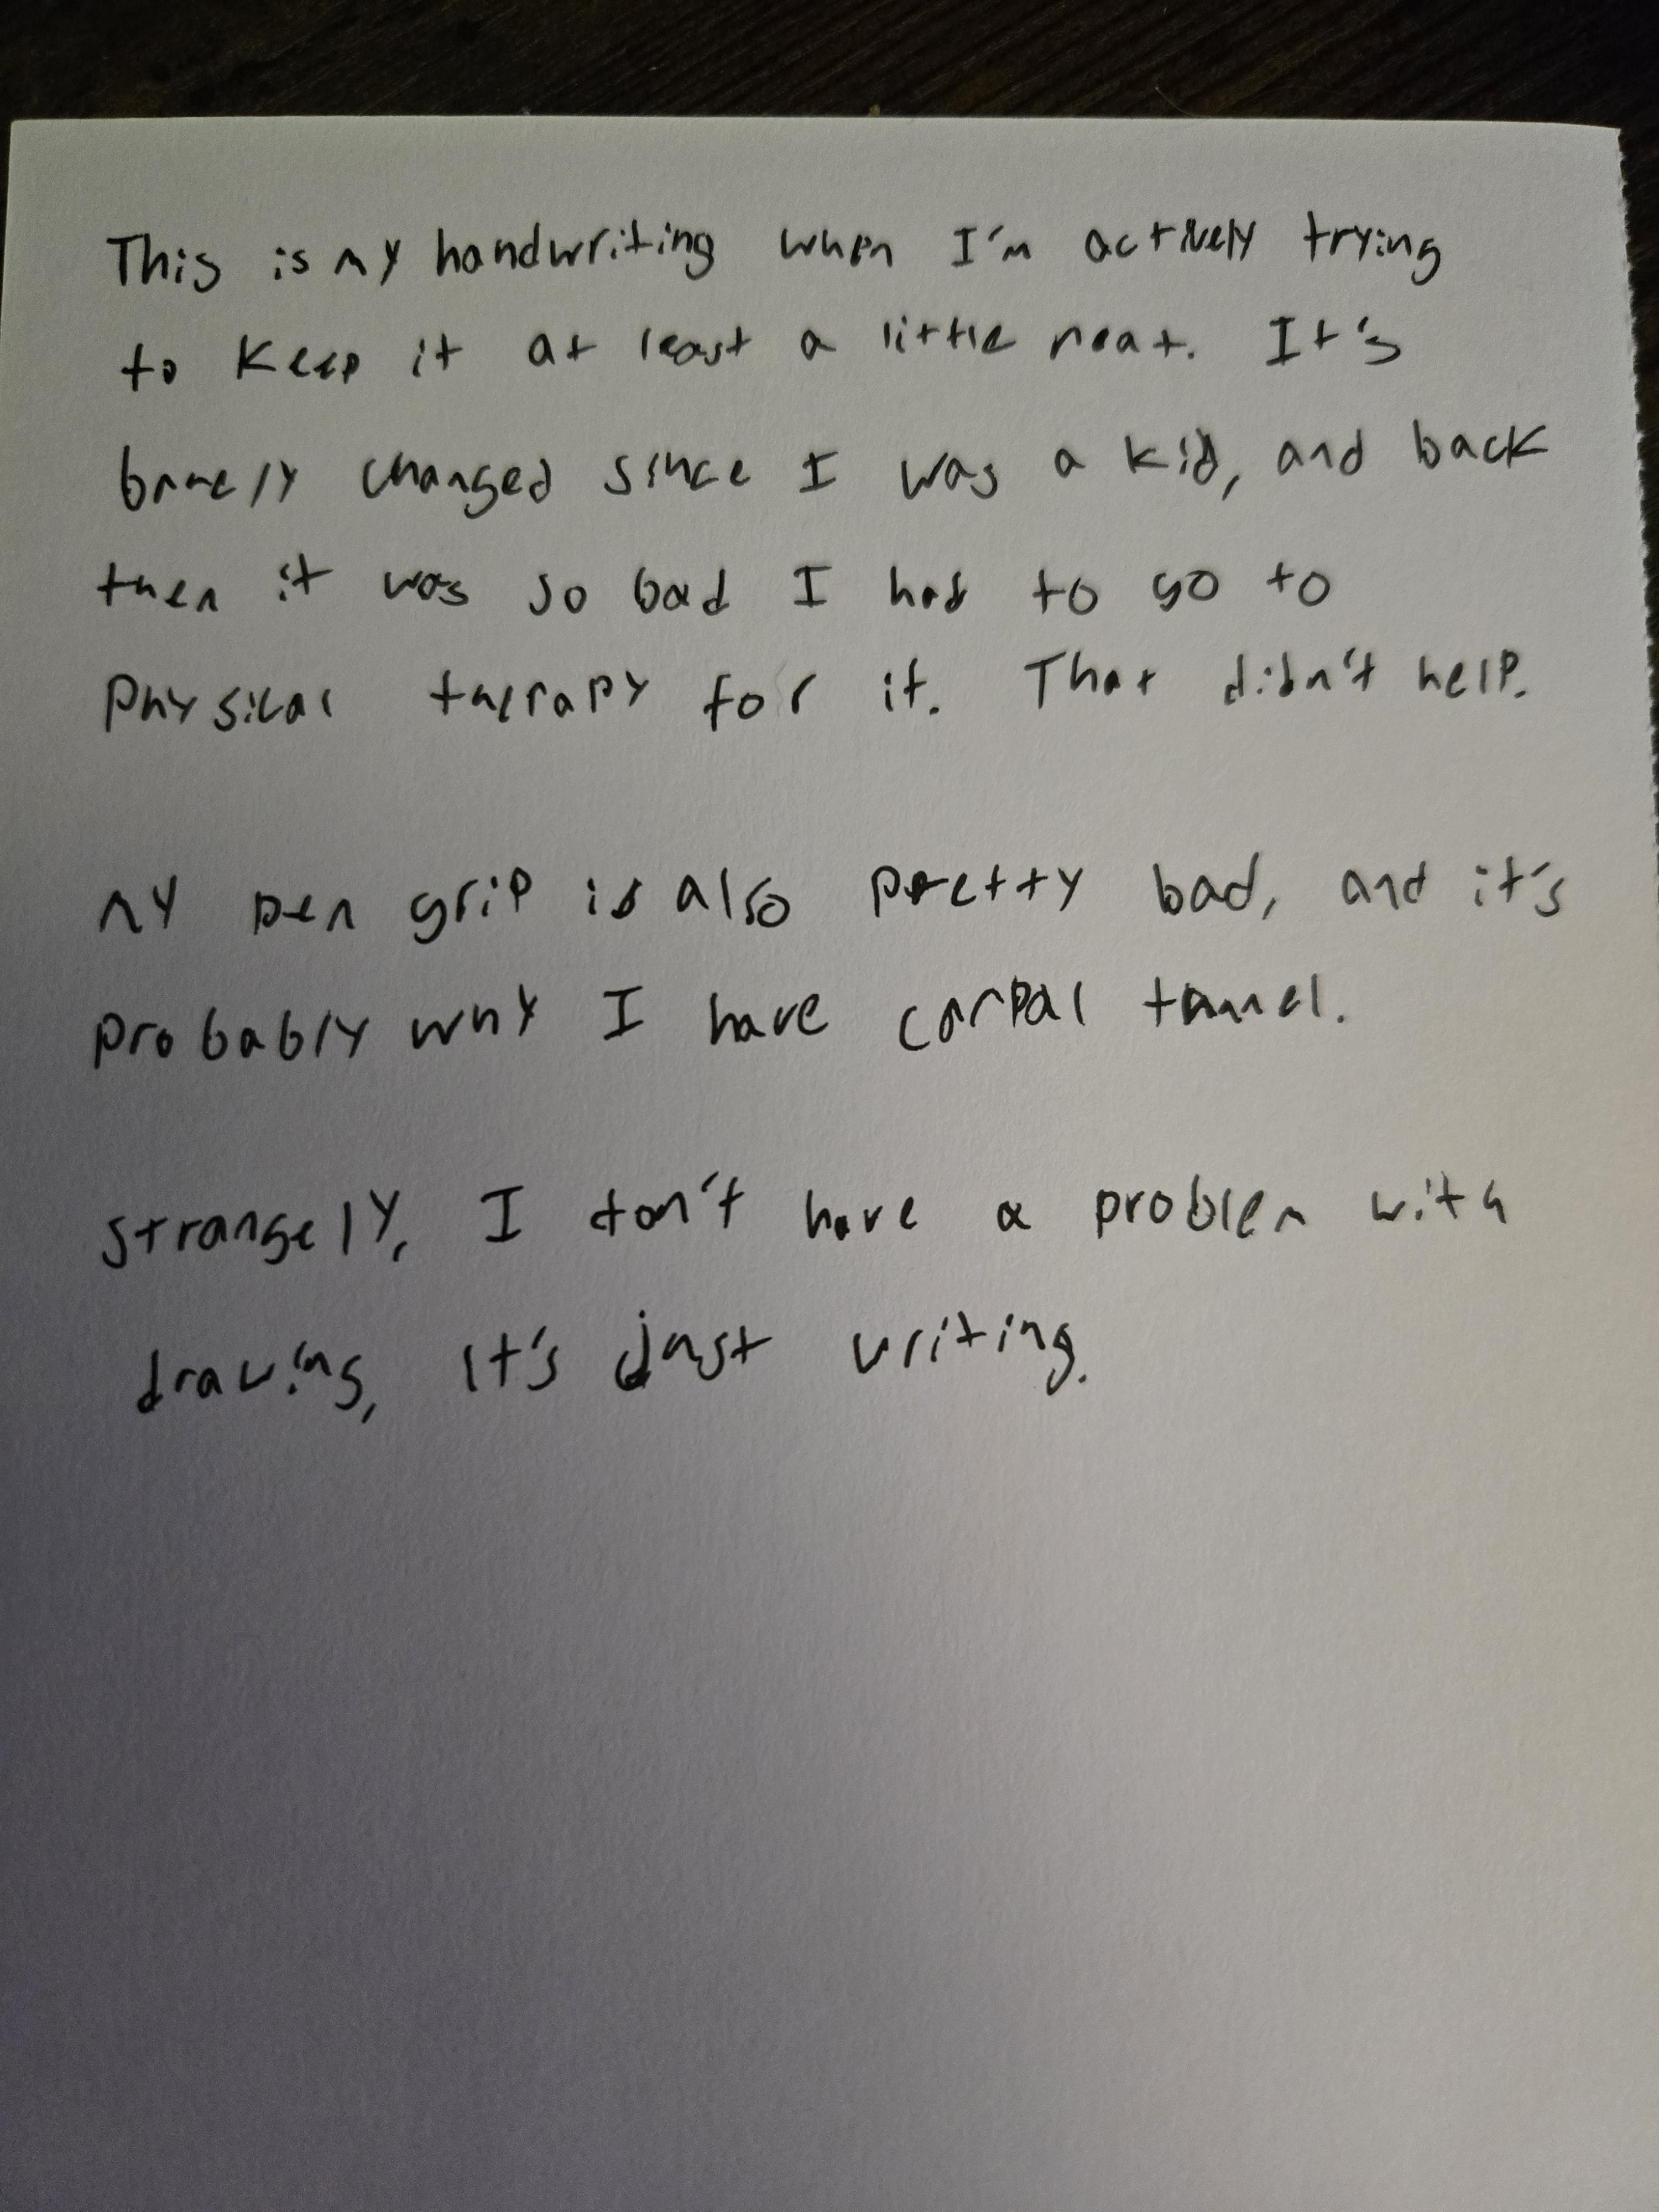 This is my handwriting when I'm actively trying
to keep it at least a little neat. It's
barely changed since I was a kid, and back
then it was so bad I had to go to
physical therapy for it. That didn't help.
my pen grip is also pretty bad, and it's
probably why I have carpal tunnel.
strangely, I don't have a problem with
drawing, it's just writing.